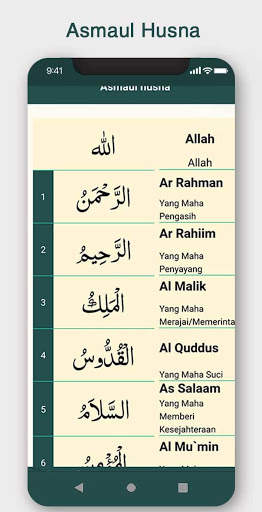 Asmaul Husna
9:41
Asmaul husna
الله
Allah
Allah
1
الرَّحْمَنُ
Ar Rahman
Yang Maha
Pengasih
2
الرَّحِيمُ
Ar Rahiim
Yang Maha
Penyayang
3
الْمَلِكُ
Al Malik
Yang Maha
Merajai/Memerinta
4
الْقُدُّوسُ
Al Quddus
Yang Maha Suci
5
السَّلَامُ
As Salaam
Yang Maha
Memberi
Kesejahteraan
6
الْمُؤْمِنُ
Al Mu`min
Yang Maha